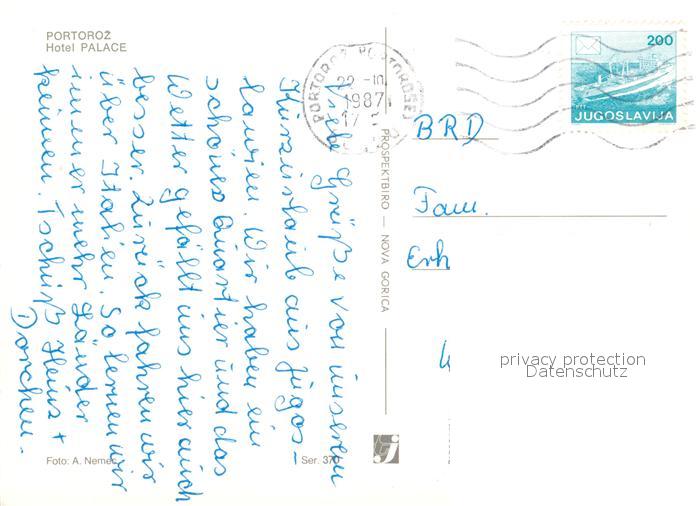 PORTOROŽ
Hotel PALACE
Viele Grüße von unserem
Kurzurlaub aus Jugos-
lawien. Wir haben ein
schönes Quartier und das
Wetter gefällt uns hier auch
besser. Zurück fahren wir
über Italien. So lernen wir
immer mehr Länder
kennen. Tschüß Heinz +
Dorchen.
Foto: A. Nemec
Ser. 375
PROSPEKTBIRO — NOVA GORICA
PORTOROŽ PORTOROSE
22 -10
1987
17
200
JUGOSLAVIJA
BRD
Fam.
Erh
privacy protection
Datenschutz